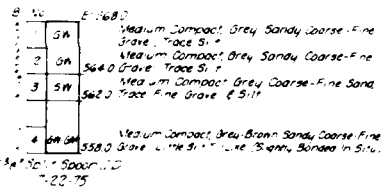 No. El 568.0
1 GW Medium Compact, Grey Sandy Coarse-Fine
Gravel, Trace Silt
2 GW Medium Compact, Grey Sandy Coarse-Fine
564.0 Gravel, Trace Silt
3 SW Medium Compact Grey Coarse-Fine Sand,
562.0 Trace Fine Gravel & Silt
4 GW-GM Medium Compact, Grey-Brown Sandy Coarse-Fine
558.0 Gravel, Little Silt (Slightly Bonded In Situ)
Split Spoon
7-22-75